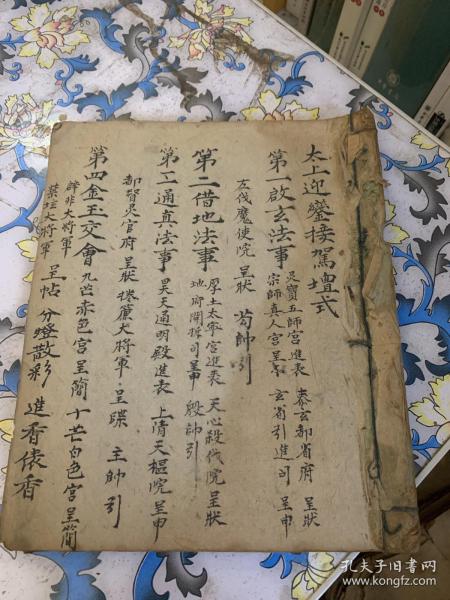 太上迎鑾接駕壇式
第一啟玄法事 灵寶五師宮進表 泰玄都省府 呈狀
宗師真人宮呈表 玄省引進司 呈申
左伐魔使院 呈狀 苟帥引
第二借地法事 厚土太寧宮進表 天心殺伐院 呈狀
地府開探司呈申 殷帥引
第三通真法事 昊天通明殿進表 上清天樞院 呈申
都督灵官府 呈狀 捲簾大將軍 呈牒 王帥引
第四金玉交會 九芒赤色宮呈簡 十芒白色宮呈簡
辟非大將軍
禁坛大將軍 呈帖 分燈散彩 進香俵香
孔夫子旧书网
www.kongfz.com